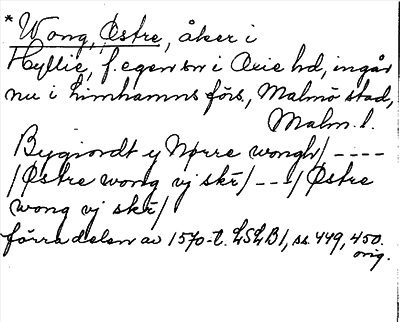 * Wong, Østre, åker i
Hyllie, f. egen sn i Oxie hd, ingår
nu i Limhamns förs, Malmö stad,
Malm. l.
Bygiordt y Nørre wongh/ ----
/Østre wong vj skr/ ---/ Østre
wong vj skr/
förra delen av 1570-t. LSLB1, ss 449, 450.
orig.